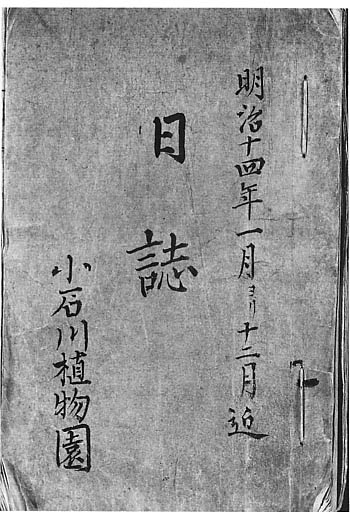 明治十四年一月ヨリ十二月迄
日誌
小石川植物園